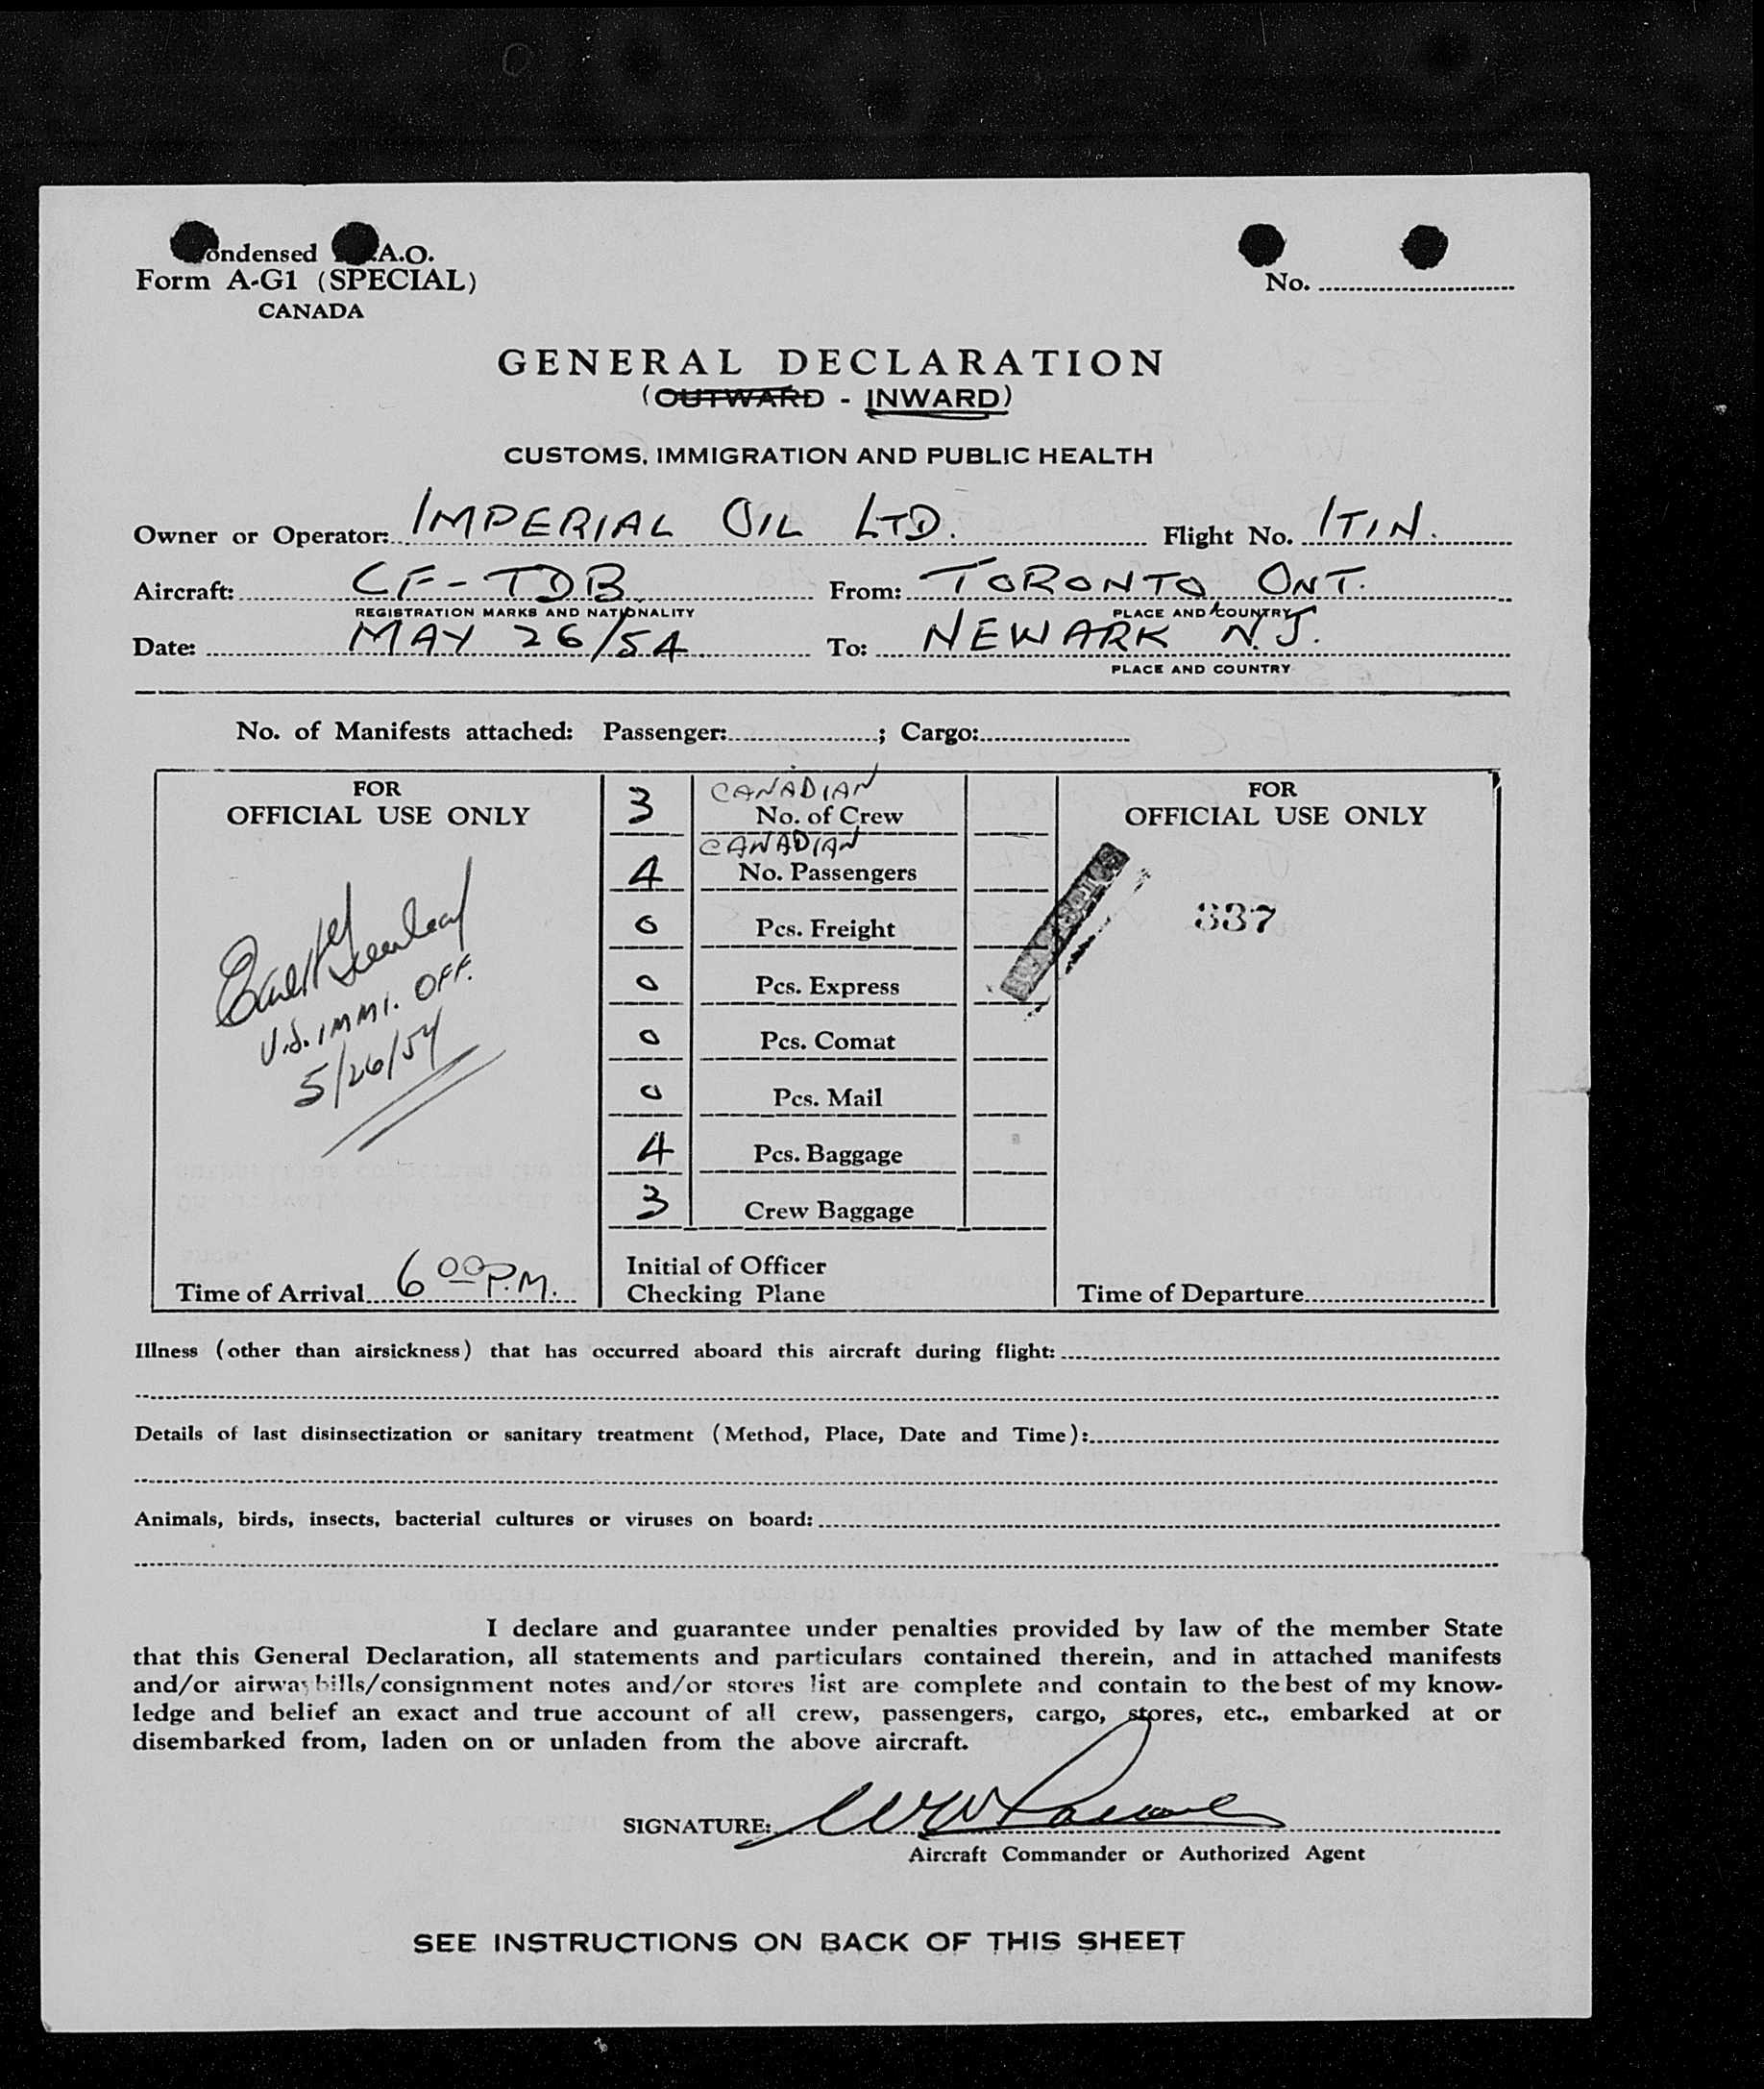 ondensed A.O.
Form A-G1 (SPECIAL)
CANADA
No.
GENERAL DECLARATION
(OUTWARD - INWARD)
CUSTOMS, IMMIGRATION AND PUBLIC HEALTH
Owner or Operator: IMPERIAL OIL LTD. Flight No. ITIN.
Aircraft: CF-TDB From: TORONTO ONT.
REGISTRATION MARKS AND NATIONALITY PLACE AND COUNTRY
Date: MAY 26/54 To: NEWARK N.J.
PLACE AND COUNTRY
No. of Manifests attached: Passenger: ; Cargo:
FOR
OFFICIAL USE ONLY
U.S. IMMI. OFF.
5/26/54
Time of Arrival 6 00 P.M.
3 CANADIAN
No. of Crew
CANADIAN
4 No. Passengers
0 Pcs. Freight
0 Pcs. Express
0 Pcs. Comat
0 Pcs. Mail
4 Pcs. Baggage
3 Crew Baggage
Initial of Officer
Checking Plane
FOR
OFFICIAL USE ONLY
337
Time of Departure
Illness (other than airsickness) that has occurred aboard this aircraft during flight:
Details of last disinsectization or sanitary treatment (Method, Place, Date and Time):
Animals, birds, insects, bacterial cultures or viruses on board:
I declare and guarantee under penalties provided by law of the member State
that this General Declaration, all statements and particulars contained therein, and in attached manifests
and/or airwaybills/consignment notes and/or stores list are complete and contain to the best of my know-
ledge and belief an exact and true account of all crew, passengers, cargo, stores, etc., embarked at or
disembarked from, laden on or unladen from the above aircraft.
SIGNATURE:
Aircraft Commander or Authorized Agent
SEE INSTRUCTIONS ON BACK OF THIS SHEET